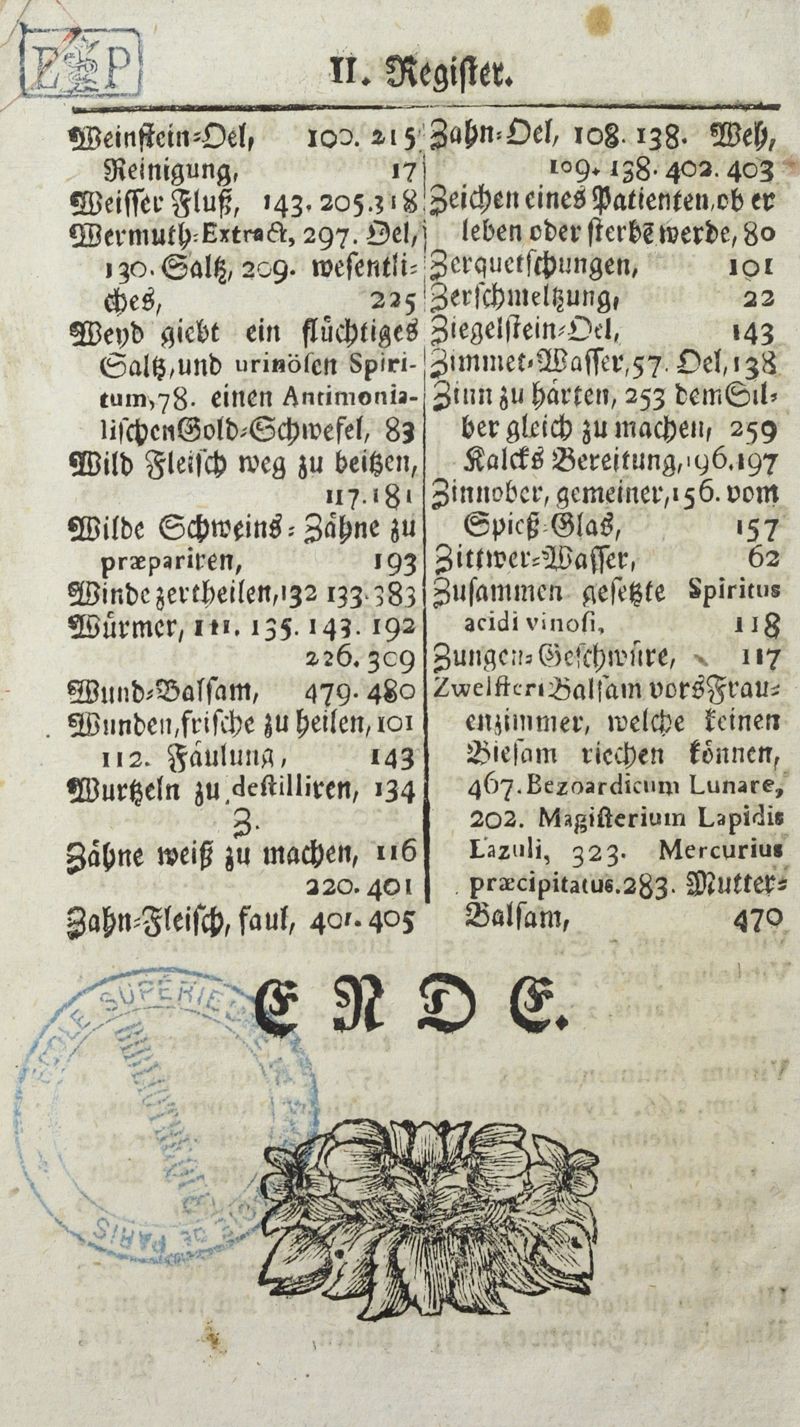 E P
II. Register.
Weinstein-Oel, 100. 215
Reinigung, 17
Weisser Fluß, 143. 205. 318
Wermuth-Extract, 297. Oel,
130. Saltz, 209. wesentli-
ches, 225
Weyd giebt ein flüchtiges
Saltz, und urinösen Spiri-
tum, 78. einen Antimonia-
lischen Gold-Schwefel, 83
Wild Fleisch weg zu beitzen,
117. 181
Wilde Schweins-Zähne zu
præpariren, 193
Winde zertheilen, 132 133. 383
Würmer, 111. 135. 143. 192
226. 309
Wund-Balsam, 479. 480
Wunden, frische zu heilen, 101
112. Fäulung, 143
Wurtzeln zu destilliren, 134
Z.
Zähne weiß zu machen, 116
220. 401
Zahn-Fleisch, faul, 401. 405
Zahn-Oel, 108. 138. Weh,
109. 138. 402. 403
Zeichen eines Patienten, ob er
leben oder sterbē werde, 80
Zerquetschungen, 101
Zerschmeltzung, 22
Ziegelstein-Oel, 143
Zimmet-Wasser, 57. Oel, 138
Zinn zu härten, 253 dem Sil-
ber gleich zu machen, 259
Kalcks Bereitung, 196. 197
Zinnober, gemeiner, 156. vom
Spieß-Glas, 157
Zittwer-Wasser, 62
Zusammen gesetzte Spiritus
acidi vinosi, 118
Zungen-Geschwüre, 117
Zwelfferi Balsam vors Frau-
enzimmer, welche keinen
Biesam riechen können,
467. Bezoardicum Lunare,
202. Magisterium Lapidis
Lazuli, 323. Mercurius
præcipitatus. 283. Mutter-
Balsam, 470
ENDE.
ECOLE SUPÉRIE
DE PARIS